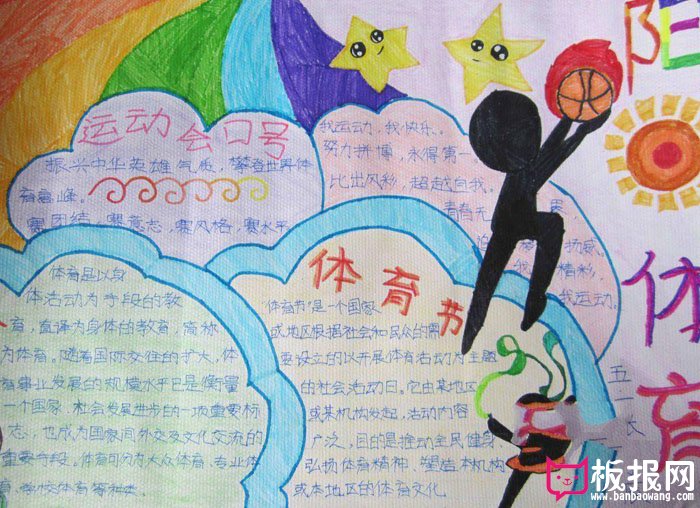 运动会口号
振兴中华英雄气质，攀登世界体
育高峰。
赛团结，赛意志，赛风格，赛水平
我运动，我快乐。
努力拼搏，永得第一
比出风彩，超越自我。
青春无
扬威。
精彩，
我运动。
阳
体
育
五一
体育是以身
体活动为手段的教
育，直译为身体的教育，简称
为体育。随着国际交往的扩大，体
育事业发展的规模水平已是衡量
一个国家、社会发展进步的一项重要标
志，也成为国家间外交及文化交流的
重要手段。体育可分为大众体育、专业体
育、学校体育等种类。
体育节
"体育节"是一个国家
或地区根据社会和民众的需
要设立的以开展体育活动为主题
的社会活动日。它由某地区
或某机构发起，活动内容
广泛，目的是推动全民健身，
弘扬体育精神，塑造本机构
或本地区的体育文化
板报网
www.banbaowang.com